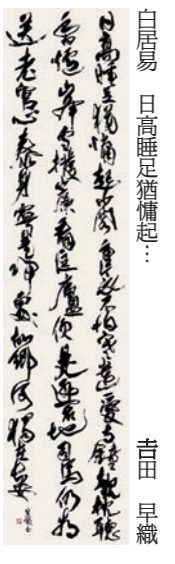 白居易　日高睡足猶慵起…　𠮷田　早織
日高睡足猶慵起小閣重衾不怕寒遺愛寺鐘欹枕聴
香爐峰雪撥簾看匡廬便是逃名地司馬仍為
送老官心泰身寧是帰處故郷何獨在長安